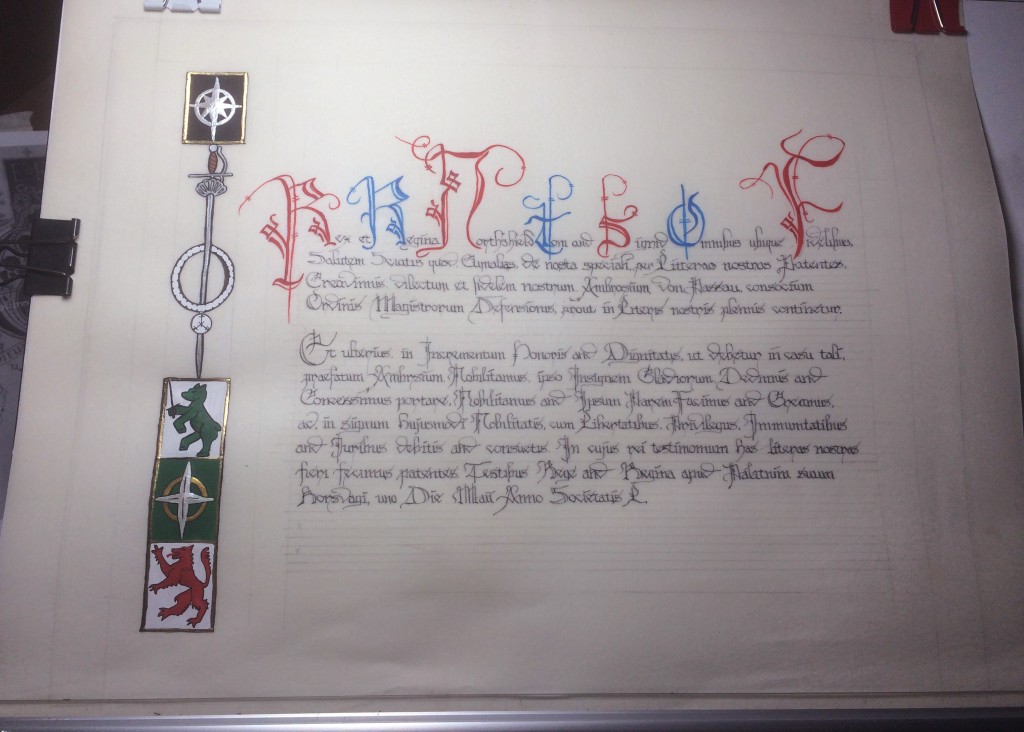 Rex et Regina Northshield Tom and Sigrid Omnibus ubique Fidelibus,
Salutem Sciatis quod Cumalias, de nostra speciali, per Litteras nostras Patentes,
Creavimus dilectum et fidelem nostrum Ambrosium von Passau, consocium
Ordinis Magistrorum Defensionus, prout in Literis nostris plenius continetur.
Et ulterius, in Incrementum Honoris and Dignitatis, ut debetur in casu tali,
praefatum Ambrosium, Nobilitamus, ipso Insignem Gladiorum Dedimus and
Concessimus portare, Nobilitamus and Ipsum Parem Facimus and Creamus,
ac, in signum hujusmodi Nobilitatis, cum Libertatibus, Privilegus, Immunitatibus
and Juribus debitis and consuetis. In cujus rei testimonium has literas nostras
fieri fecimus patentes. Testibus Rege and Regina apud Palatium suum
uno Die Maii Anno Societatis L.